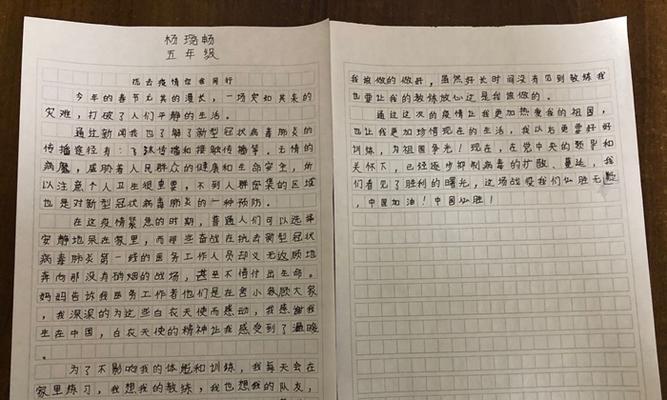 杨璐畅
五年级
抗击疫情你我同行
今年的春节尤其的漫长，一场突如其来的
灾难，打破了人们平静的生活。
通过新闻我也了解了新型冠状病毒肺炎的
传播途径有：飞沫传播和接触传播等。无情的
病魔，威胁着人民群众的健康和生命安全，所
以注意个人卫生很重要，不到人群密集的区域
也是对新型冠状病毒肺炎的一种预防。
在这疫情紧急的时期，普通人们可以选择
安静地呆在家里，而那些奋战在抗击新型冠状
病毒肺炎第一线的医务工作人员却义无反顾地
奔向那没有硝烟的战场，甚至不惜付出生命。
妈妈告诉我医务工作者他们是在舍小家顾大家
，我深深的为这些白衣天使而感动，我感谢我
生在中国，白衣天使的精神让我感受到了温暖
。
为了不影响我的体能和训练，我每天会在
家里练习，我想我的教练，我也想我的队友，
我该做的做好，虽然好长时间没有见到教练我
也要让我的教练放心这是我该做的。
通过这次的疫情让我更加热爱我的祖国，
也让我更加珍惜现在的生活，我以后更要好好
训练，为祖国争光！现在，在党中央的领导和
关怀下，已经逐步抑制病毒的扩散、蔓延，我
们看见了胜利的曙光，这场战疫我们必胜无疑
，中国加油！中国必胜！